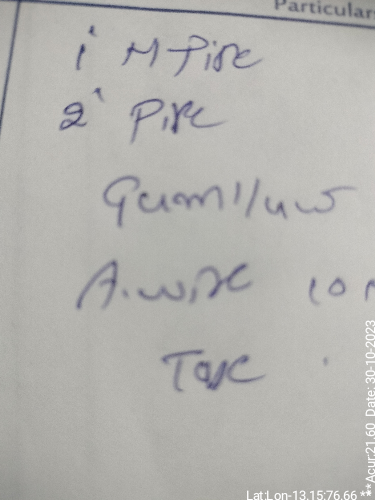 Particulars
1" M Pipe
2" Pipe
A. wire 10
Tape
Lat:Lon-13.15:76.66 **Acur:21.60 Date: 30-10-2023